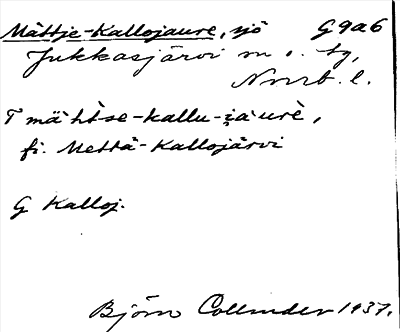 Mättje-Kallojaure, sjö G9a6
Jukkasjärvi sn o. tg,
Nmrb. l.
T mä`htse-kallu-i̯a`urè,
fi. Mettä-Kallojärvi
G Kalloj.
Björn Collinder 1937.